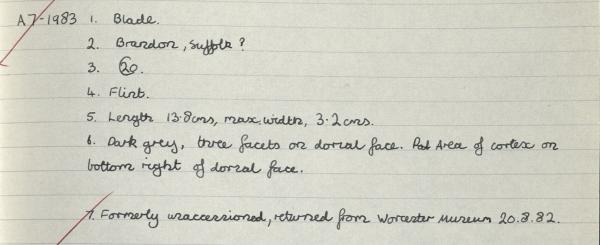 A7-1983 1. Blade.
2. Brandon, Suffolk ?
3. 20.
4. Flint.
5. Length 13.8cms, max. width, 3.2 cms.
6. Dark grey, three facets on dorsal face. Area of cortex on
bottom right of dorsal face.
7. Formerly unaccessioned, returned from Worcester Museum 20.8.82.